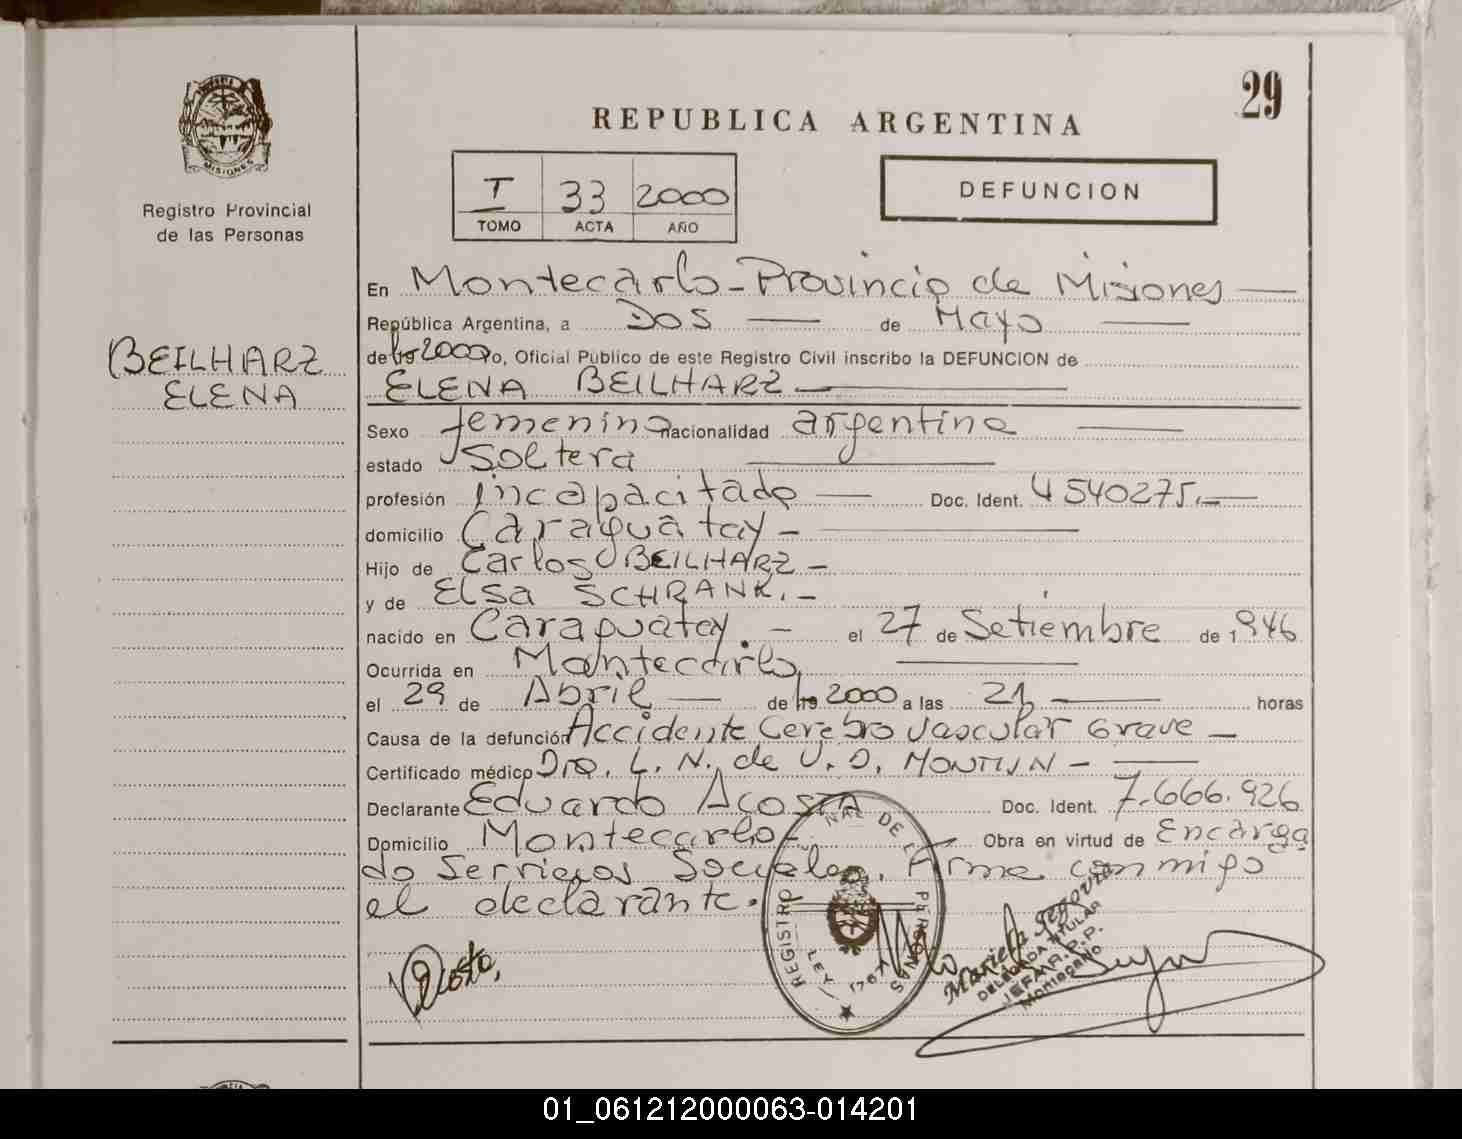 29
REPUBLICA ARGENTINA
MISIONES
Registro Provincial
de las Personas
I 33 2000
TOMO ACTA AÑO
DEFUNCION
BEILHARZ
ELENA
En Montecarlo - Provincia de Misiones
República Argentina, a DOS de Mayo
de 2000 yo, Oficial Público de este Registro Civil inscribo la DEFUNCION de
ELENA BEILHARZ
Sexo femenino nacionalidad argentina
estado Soltera
profesión incapacitada Doc. Ident. 4540275.
domicilio Caraguatay -
Hijo de Carlos BEILHARZ -
y de Elsa SCHRANK. -
nacido en Caraguatay. - el 27 de Setiembre de 1946
Ocurrida en Montecarlo
el 29 de Abril de 2000 a las 21 horas
Causa de la defunción Accidente Cerebro Vascular Grave -
Certificado médico Dra. L. N. de V. D. MONTIJN -
Declarante Eduardo Acosta Doc. Ident. 7.666.926
Domicilio Montecarlo - Obra en virtud de Encarga
do Servicios Sociales. Firma conmigo
el declarante.
Acosta
REGISTRO DE PERSONAS
LEY
Mariela Segovia
DELEGADA TITULAR
JEFA R.P.P.
Montecarlo
01_061212000063-014201